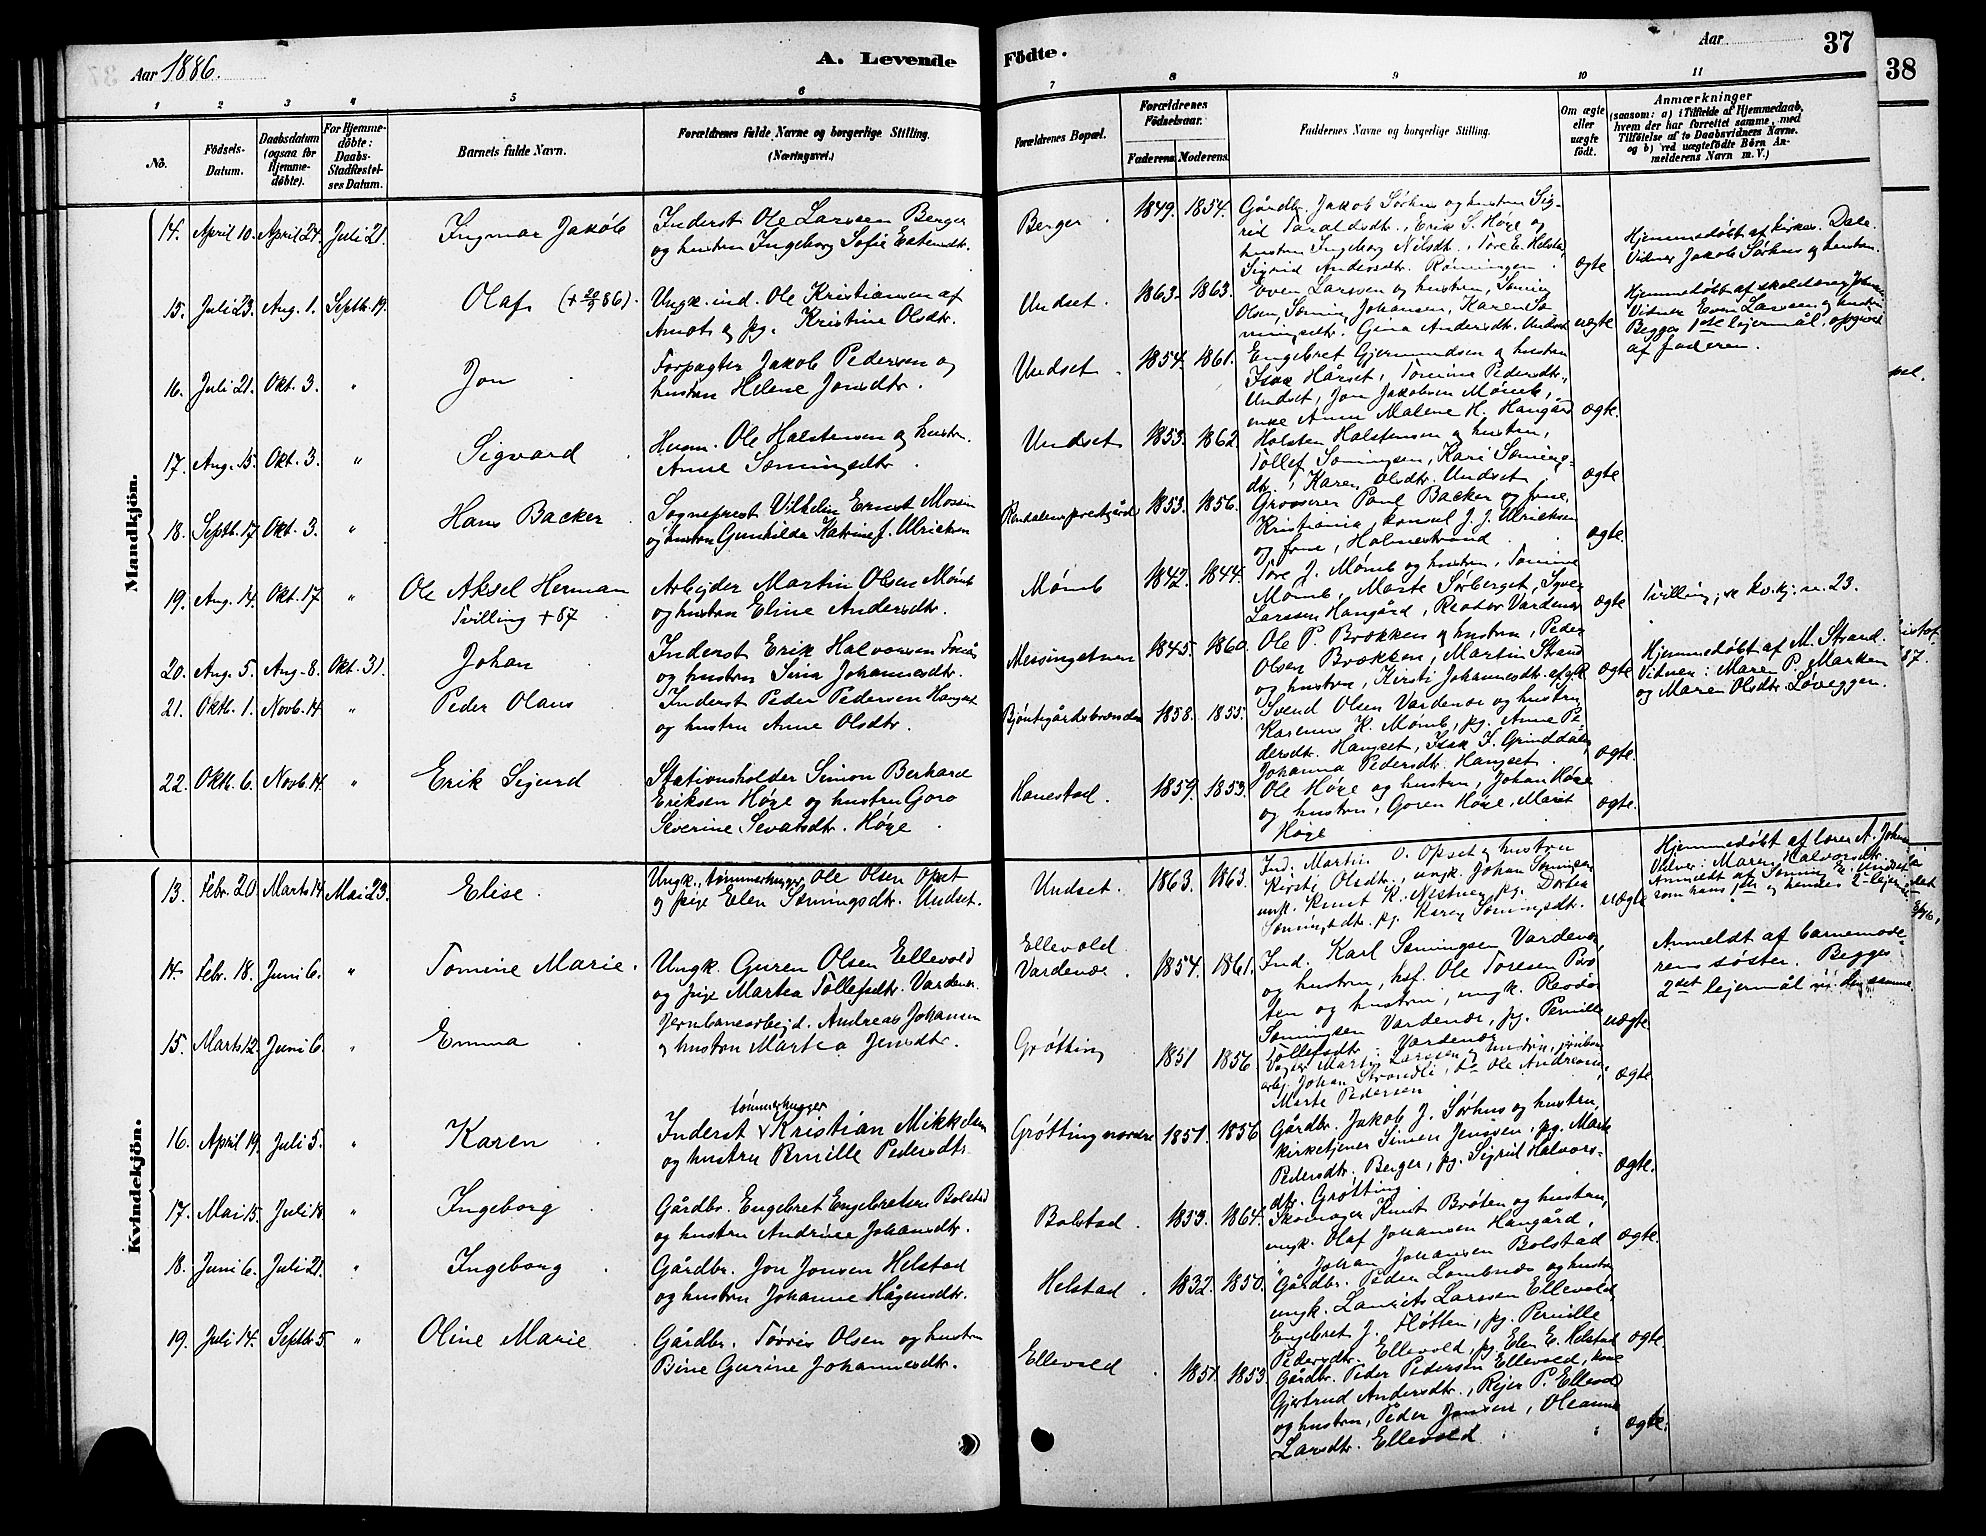 Aar 1886.
A. Levende
Fødte.
Aar
37
38
1 2 3 4 5 6 7 8 9 10 11
No.
Födsels-
Datum.
Daabsdatum
(ogsaa for
Hjemme-
døbte).
For Hjemme-
döbte:
Daabs-
Stadfæstel-
ses Datum.
Barnets fulde Navn.
Forældrenes fulde Navne og borgerlige Stilling.
(Næringsvei.)
Forældrenes Bopæl.
Forældrenes
Födselsaar.
Faderens. Moderens.
Faddernes Navne og borgerlige Stilling.
Om ægte
eller
uægte
født.
Anmærkninger
(saasom: a) i Tilfælde af Hjemmedaab,
hvem der har forrettet samme, med
Tilföielse af to Daabsvidners Navne.
og b) ved uægtefödte Börn An-
melderens Navn m. V.)
Mandkjön.
14. April 10. April 24. Juli 21. Ingmar Jakob
Inderst Ole Larsen Berger
og hustru Ingeborg Sofie Estensdtr.
Berger 1849. 1854.
Gårdbr. Jakob Sørhus og hustru Sig-
rid Taraldsdtr., Erik S. Høge og
hustru Ingeborg Nilsdtr., Tore E. Helstad,
Sigrid Andersdtr. Rønningen
ægte
Hjemmedøbt af kirkes. Dale.
Vidner Jakob Sørhus og hustru.
15. Juli 23. Aug. 1. Septb. 19. Olaf (+ 20/9 86).
Ungk. ind. Ole Kristiansen af
Åmot og pg. Kristine Olsdtr.
Undset. 1863. 1863.
Even Larsen og hustru, Søming
Olsen, Søming Johansen, Karen Sø-
mingsdtr. Gina Andersdtr. Undset
uægte
Vidner Even Larsen og hustru
Begges 1ste lejermål, opgivet
af faderen.
16. Juli 21. Okt. 3. " Jon
Forpagter Jakob Pedersen og
hustru Helene Jonsdtr.
Undset. 1854. 1861.
Engebret Gjermundsen og hustru
Isak Hårset, Tomine Pedersdtr.
Undset, Jon Jakobsen Mømb,
enke Anne Malene H. Hangård
ægte.
17. Aug. 15. Okt. 3. " Sigvard
Husm. Ole Halstensen og hustru
Anne Sømingsdtr.
Undset 1853. 1862.
Halsten Halstensen og hustru,
Tollef Sømingsen, Kari Søming-
dtr., Karen Olsdtr. Undset
ægte
18. Septb. 17 Okt. 3. " Hans Backer
Sogneprest Vilhelm Ernst Mossin
og hustru Gunhilda Katrine f. Ulriksen
Rendalens prestgård 1853. 1856.
Grosserer Paul Backer og frue,
Kristiania, konsul J. J. Ulriksen
og frue, Holmestrand
ægte.
19. Aug. 14. Okt. 17 " Ole Aksel Herman
Tvilling + 87
Arbejder Martin Olsen Mømb
og hustru Eline Andersdtr.
Mømb 1842. 1844.
Tore J. Mømb og hustru, Tomine
Mømb, Marte Sørberget, Syver
Larsen Hangård, Reodor Vardenær
ægte
Tvilling, se kv.kj. n. 23.
20. Aug. 5. Aug. 8. Okt. 31. Johan
Inderst Erik Halvorsen
og hustru Sina Johannesdtr.
Messingstuen 1845. 1860.
Ole P. Brækken og hustru, Peder
Olsen Brækken, Martin Strand
og hustru, Kirsti Johannesdtr.
ægte
Hjemmedøbt af M. Strand.
Vidner: Maren P. Marken
og Maren Olsdtr. Løveggen.
21. Oktb. 1. Novb. 14. " Peder Olaus
Inderst Peder Pedersen Hanset
og hustru Anne Olsdtr.
1858. 1855.
Svend Olsen Vardenær og hustru
Karenus K. Mømb, pg. Anne Pe-
dersdtr. Hangset, Isak I. Grinddalen,
Johanna Pedersdtr. Hangset.
ægte.
22. Oktb. 6. Novb. 14. " Erik Sigurd
Stationsholder Simon Berhard
Eriksen Høge og hustru Goro
Severine Sevatsdtr. Høge
Hanestad. 1859. 1853.
Ole Høge og hustru, Johan Høge
og hustru, Goren Høge, Marit
Høge
ægte.
Kvindekjön.
13. Febr. 20. Marts 14 Mai 23. Elise.
Ungk., tømmerhugger Ole Olsen Opset
og pige Elen Sømingsdtr. Undset.
Undset. 1863. 1863.
Ind. Martin O. Opset og hustru
Kirsti Olsdtr., ungk. Johan Sømingsen
ungk. Knut K. Nestuen, pg. Dortea
Sømingsdtr. pg. Karen Sømingsdtr.
uægte
Hjemmedøbt af lærer A. Johns
Vidner: Maren Halvorsdtr.
Anmeldt af Søming E. Undset
som hans 1ste og hendes 2det lejermål
14. Febr. 18. Juni 6. " Tomine Marie.
Ungk. Guren Olsen Ellevold
og pige Martea Tollefsdtr. Vardenær
Ellevold
Vardenær. 1854. 1861.
Ind. Karl Sømingsen Vardenær
og hustru, hsf. Ole Toresen Brø-
ten og hustru, ungk. Reodor
Sømingsen Vardenær, pg. Pernille
Tollefsdtr. Vardenær
uægte.
Anmeldt af barnemode-
rens søster. Begges
2det lejermål
15. Marts 12. Juni 6. " Emma
Jernbanearbejd. Andreas Johansen
og hustru Martea Jensdtr.
Grøtting 1851 1856
Vogter Martin Larsen og hustru,
arbj. Johan Strandli, do Ole Andreasen,
Marte Pedersen
ægte
16. April 19. Juli 5. " Karen
tømmerhugger
Inderst Kristian Mikkelsen
og hustru Pernille Pedersdtr.
Grøtting nordre 1851. 1856
Gårdbr. Jakob J. Sørhus og hustru
kirketjener Simen Jensen, pg. Marte
Pedersdtr. Berger, pg. Sigrid Halvors-
dtr. Grøtting
ægte.
17. Mai 15. Juli 18. " Ingeborg
Gårdbr. Engebret Engebretsen Bolstad
og hustru Andrine Johansdtr.
Bolstad. 1853. 1864.
Skomager Knut Brøten og hustru,
ungk. Olaf Johansen Hangård,
" Johan Johansen Bolstad
ægte.
18. Juni 6. Juli 21. " Ingeborg
Gårdbr. Jon Jonsen Helstad
og hustru Johanne Hågensdtr.
Helstad 1832. 1850.
Gårdbr. Peder Lombnæs og hustru
ungk. Laurits Larsen Ellevold,
Engebret J. Fløtten, pg. Pernille
Pedersdtr. Ellevold, pg. Elen E. Helstad
ægte.
19. Juli 14. Septb. 5. " Oline Marie
Gårdbr. Tørris Olsen og hustru
Bine Gurine Johannesdtr.
Ellevold 1851. 1853.
Gårdbr. Peder Pedersen Ellevold, kone
Gjertrud Andersdtr., Rejer P. Ellevold
og hustru, Peder Jensen, Oleanna
Larsdtr. Ellevold
ægte.